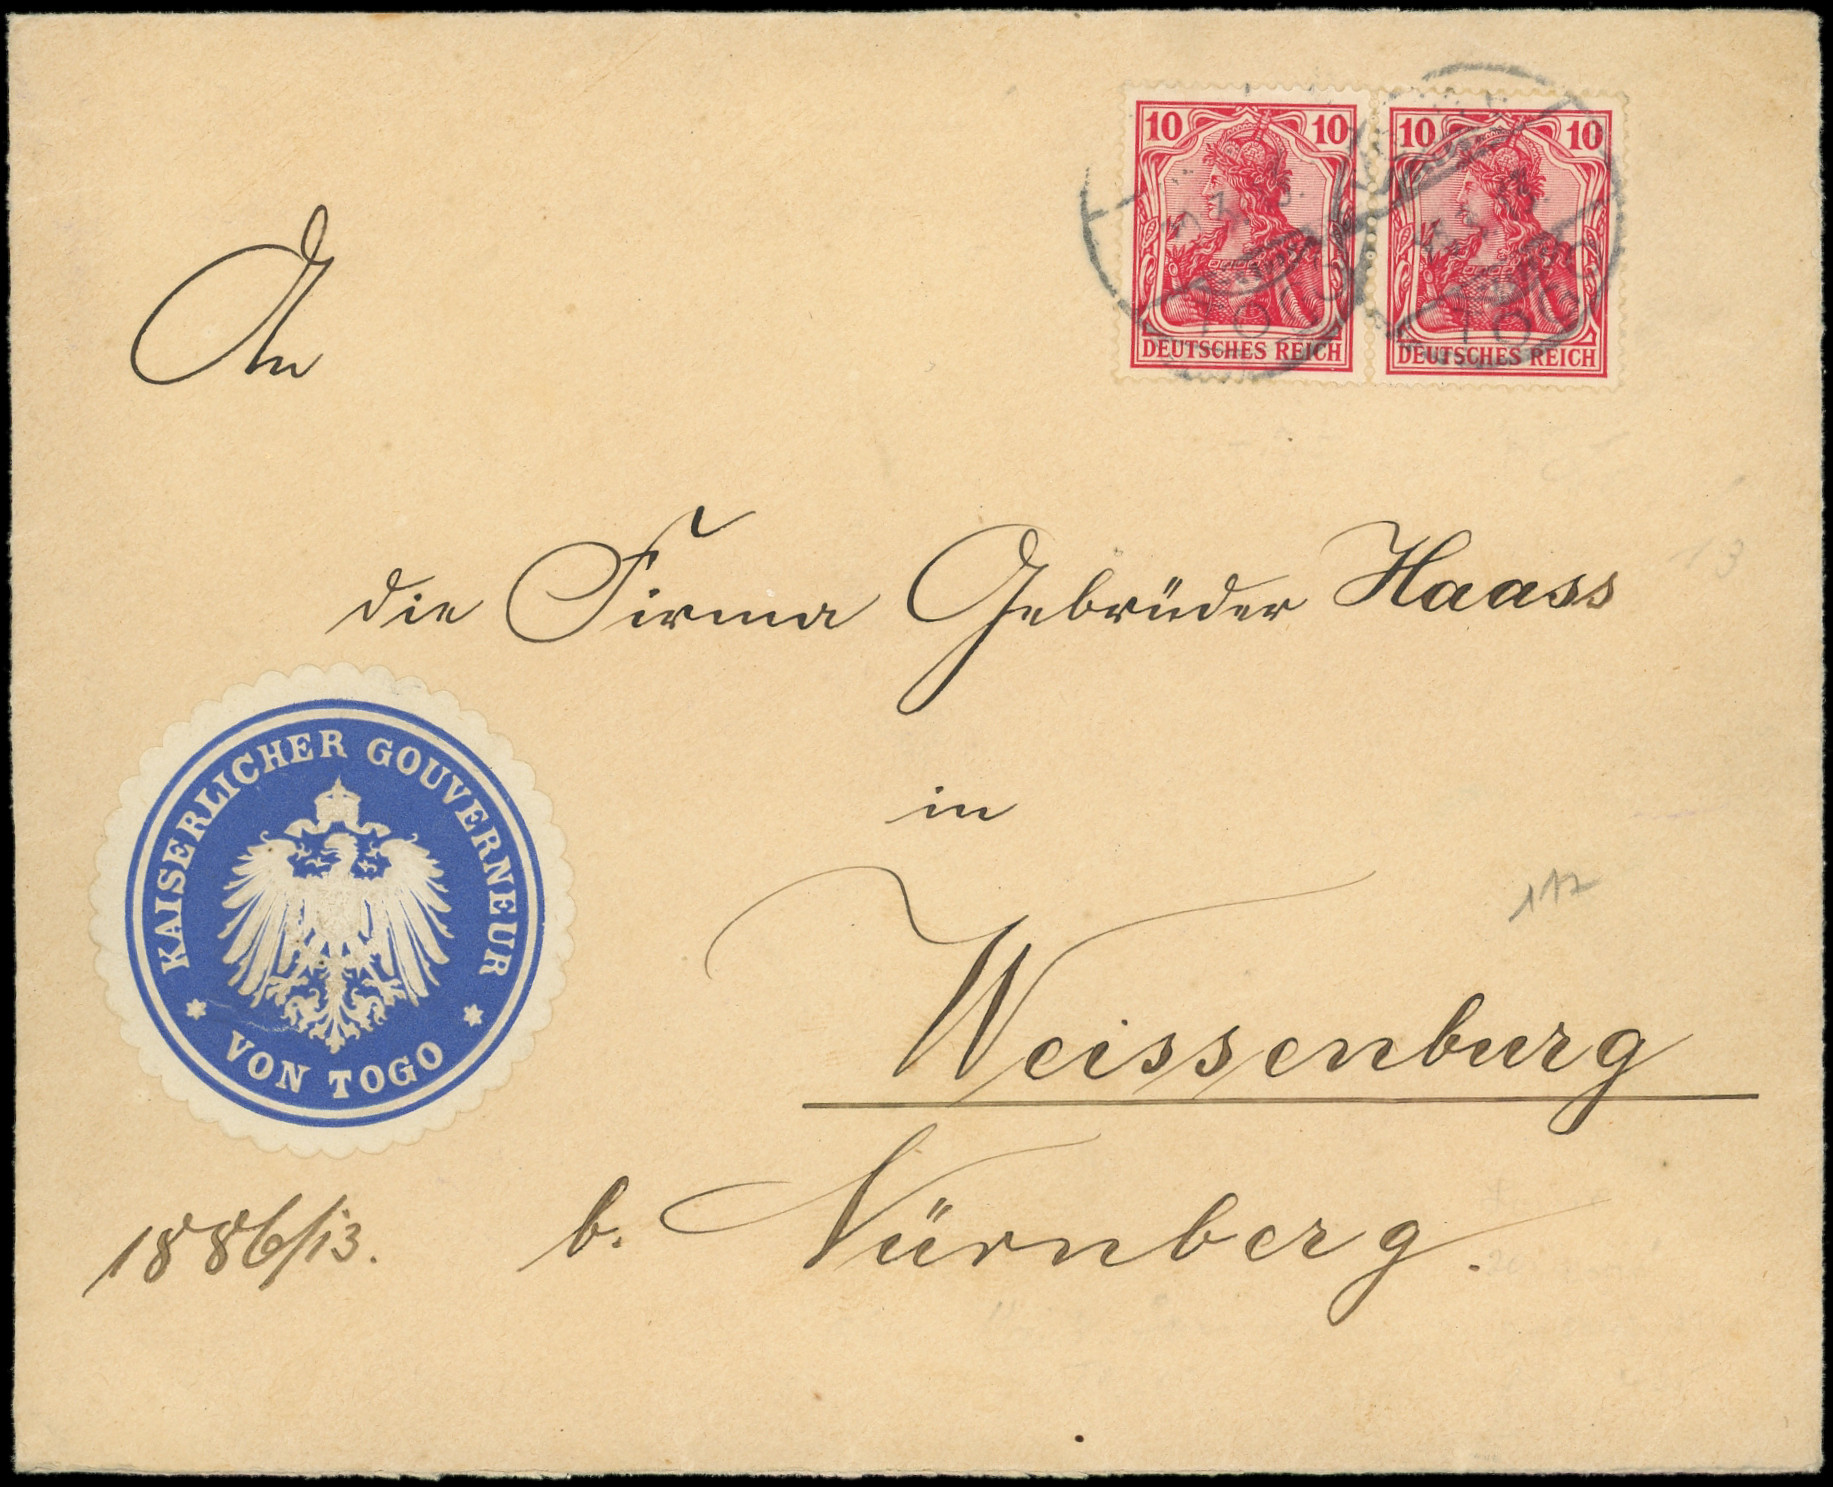 10 10 10 10
DEUTSCHES REICH DEUTSCHES REICH
TOGO TOGO
An
die Firma Gebrüder Haass
in
Weissenburg
b. Nürnberg.
KAISERLICHER GOUVERNEUR
* VON TOGO *
1886/13.
117